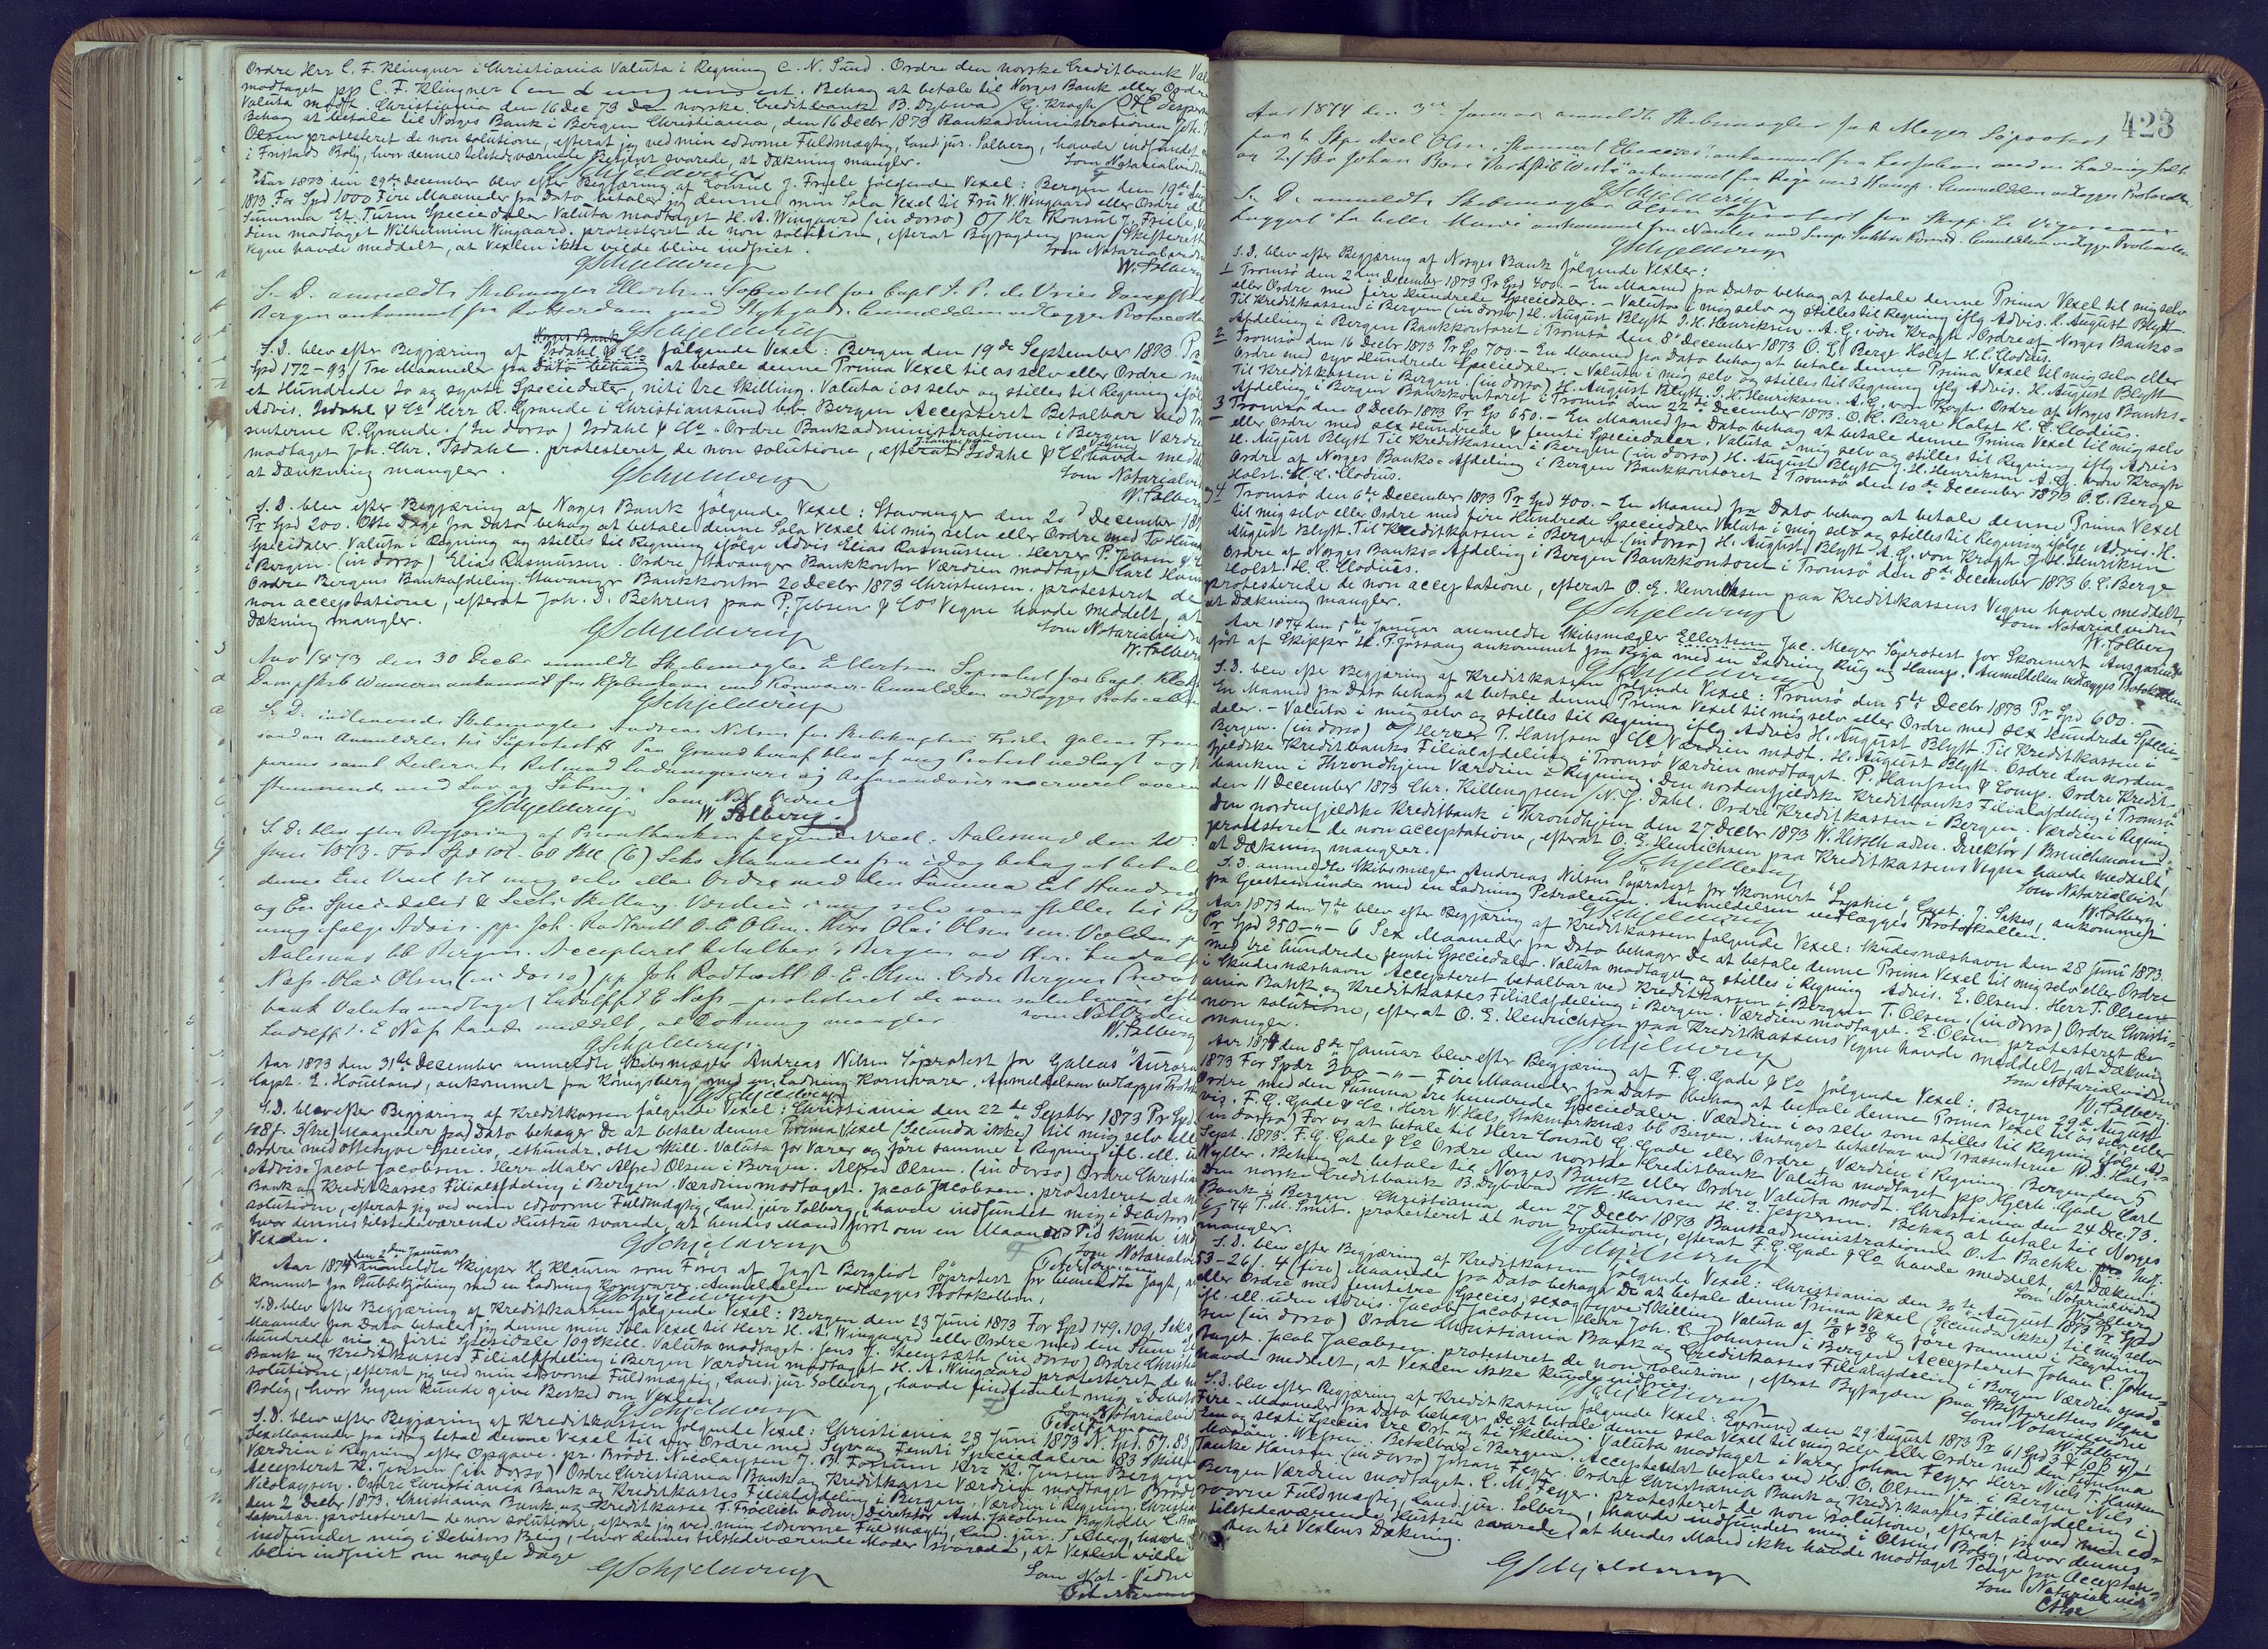 Ordre Herr C. F. Klingner i Christiania Valuta i Regning C. N. Sund. Ordre den norske Creditbank
modtaget pp C. F. Klingner Behag at betale til Norges Bank eller Ordre
Valuta modt. Christiania den 16 Dec 73 Den norske Creditbank B. Dybwad / G. Kragh
Behag at betale til Norges Bank i Bergen Christiania, den 16 Decbr 1873 Bankadministrationen
Olsen protesteret de non solutione, efterat jeg ved min edsvorne Fuldmægtig, Cand. jur. Solberg, havde indfundet
i Fristads Bolig, hvor dennes tilstedeværende Betjent svarede, at Dækning mangler.
GSchjelderup
Som Notarialvidne
Aar 1873 den 29de December blev efter Begjæring af Consul J. Friele følgende Vexel: Bergen den 19de
1873 For Spd 1000 Fire Maaneder fra Dato betaler jeg denne min Sola Vexel til Fru W. Wingaard eller Ordre
Summa Et Tusin Speciedaler Valuta modtaget H. A. Wingaard (in dorso) O/ Hr Konsul J. Friele
dien modtaget Wilhelmine Wingaard. protesteret de non solutione, efterat Byfogden paa Skifterett
Vegne havde meddelt, at Vexlen ikke vilde blive indfriet.
GSchjelderup
Som Notarialvidne
W. Solberg
S. D. anmeldte Skibsmægler Ellertsen Søprotest for Capt J. P. de Vries Dampsk
Bergen ankommet fra Rotterdam med Stykgods. Anmeldelsen vedlægges Protocolle
GSchjelderup
Norges Bank
S. D. blev efter Begjæring af Isdahl & Co følgende Vexel: Bergen den 19de September 1873 Pr
Spd 172-93/ Tre Maaneder fra Dato behag at betale denne Prima Vexel til os selv eller Ordre m
et Hundrede to og synti Speciedaler, niti tre Skilling. Valuta i os selv og stilles til Regning ifølge
Advis. Isdahl & Co Herr R. Grande i Christiansund bb Bergen Accepteret Betalbar ved Tra
senterne R. Grande. (In dorso) Isdahl & Co. Ordre Bankadministrationen i Bergen Værdien
modtaget Joh. Chr. Isdahl. protesteret de non solutione, efterat Isdahl & Co havde meddelt
at Dækning mangler.
GSchjelderup
Som Notarialvidne
W. Solberg
S. D. blev efter Begjæring af Norges Bank følgende Vexel: Stavanger den 20 December 187
Pr Spd 200. Otte Dage fra Dato behag at betale denne Sola Vexel til mig selv eller Ordre med To Hund
Speciedaler. Valuta i Regning og stilles til Regning ifølge Advis Elias Rasmussen. Herrer P. Jebsen &
i Bergen. (in dorso) Elias Rasmussen. Ordre Stavanger Bankkontor Værdien modtaget Carl Han
Ordre Bergens Bankafdeling. Stavanger Bankkontor 20 Decbr 1873 Christensen. protesteret de
non acceptatione, efterat Joh. D. Behrens paa P. Jebsen & Cos Vegne havde meddelt, at
Dækning mangler.
GSchjelderup
Som Notarialvidne
W. Solberg
Aar 1873 den 30 Decbr anmeldt Skibsmægler Ellertsen Søprotest for Capt.
Dampskib ankommet fra Kjøbenhavn med Kornvarer. Anmeldelsen vedlægges Protocollen
GSchjelderup
S. D. indleverede Skibsmægler Andreas Nilsen
saadan Anmeldelse til Søprotest. Paa Grund heraf blev af mig Protest nedlagt og
stemmende med Lov og Sedvane.
GSchjelderup
Som Not. Vidne
W Solberg
S. D. blev efter Begjæring af Privatbanken følgende Vexel: Aalesund den 20
Juni 1873. For Spd 101-60 Skl (6) Seks Maaneder fra idag behag at betale
denne Vexel til mig selv eller Ordre med den Summa Et Hundrede
og En Speciedaler & Seksti Skilling. Værdien i mig selv som stilles til Reg
ning ifølge Advis. pp. Joh. Rodtwitt O. E. Olsen. Herr Olai Olsen sen. Volden p
Aalesund bb Bergen. Accepteret betalbar i Bergen ved Hr. Ludolf
Næss. Olai Olsen (in dorso) pp Joh Rodtwitt O. E. Olsen. Ordre Bergens Privat
bank Valuta modtaget Ludolf J. E Næss - protesteret de non solutione efter
Ludolf J. E Næss havde meddelt, at Dækning mangler
som Not Vidne
W. Solberg
GSchjelderup
Aar 1873 den 31te December anmeldte Skibsmægler Andreas Nilsen Søprotest for Galeas "Aurora
Capt. E. Houeland, ankommet fra Königsberg med en Ladning Kornvarer. Anmeldelsen vedlægges Protok
GSchjelderup
S. D. blev efter Begjæring af Kreditkassen følgende Vexel: Christiania den 22de Septbr 1873 Pr Spd.
3 (tre) Maaneder fra Dato behager De at betale denne Prima Vexel (Secunda ikke) til mig selv eller
Ordre med ottetyve Species, ethundr. otte Skill. Valuta for Varer og føre samme i Regning
Advis. Jacob Jacobsen. Herr Maler Alfred Olsen i Bergen. Alfred Olsen. (in dorso) Ordre Christian
Bank og Kreditkasses Filialafdeling i Bergen. Værdien modtaget. Jacob Jacobsen. protesteret de non
solutione, efterat jeg ved min edsvorne Fuldmægtig, Cand. jur. Solberg, havde indfundet mig i Debitors
hvor dennes tilstedeværende Hustru svarede, at hendes Mand først om en Maaneds Tid kunde ind
Vexlen.
GSchjelderup
Som Notarialvidne
den 2den Januar
Aar 1874 anmeldte Skipper H. Klausen som Fører af Jagt Bergliot Søprotest for bemeldte Jagt, an
kommet fra Stubbekjøbing med en Ladning Kornvarer. Anmeldelsen vedlægges Protokollen,
GSchjelderup
S. D. blev efter Begjæring af Kreditkassen følgende Vexel: Bergen den 23 Juni 1873 For Spd 149.109. Seks
Maaneder fra Dato betaler jeg denne min Sola Vexel til Herr H. A. Wingaard eller Ordre med den Sum
hundrede ni og firti Speciedaler 109 Skill. Valuta modtaget. Jens H. Steensæth (in dorso) Ordre Christia
Bank og Kreditkasses Filialafdeling i Bergen Værdien modtaget H. A. Wingaard protesteret de non
solutione, efterat jeg ved min edsvorne Fuldmægtig, Cand. jur. Solberg, havde indfundet mig i Debitors
Bolig, hvor Ingen kunde give Besked om Vexlen.
GSchjelderup
Som Notarialvidne
S. D. blev efter Begjæring af Kreditkassen følgende Vexel: Christiania 23 Juni 1873 57.83
Sex Maaneder fra idag betal denne Vexel til vor Ordre med Syv og Femti Speciedalere 83 Skilling
Værdien i Regning efter Opgave. pr. Brødr. Nicolaysen J. B. Fossum Hrr K. Jensen Bergen
Accepteret K. Jensen (in dorso) Ordre Christiania Bank og Kreditkasse Værdien modtaget Brødr
Nicolaysen. Ordre Christiania Bank og Kreditkasses Filialafdeling i Bergen. Værdien i Regning. Christia
den 2 Decbr 1873. Christiania Bank og Kreditkasse F. Frölich adm. Direktør Ant. Jacobsen Bogholder
protesteret de non solutione, efterat jeg ved min edsvorne Fuldmægtig, Cand. jur. Solberg, havde
indfundet mig i Debitors Bolig, hvor dennes tilstedeværende Moder svarede, at Vexlen vilde
blive indfriet om nogle Dage
GSchjelderup
Som Not. Vidne
423
Aar 1874 den 3die Januar anmeldte Skibsmægler Jac Meyer Søprotest
for 1. Skpr Axel Olsen, Skonnert Ebeneser, ankommet fra med en Ladning Salt
og 2. Johan ankommet fra Riga med Hamp. Anmeldelsen vedlægges Protocollen.
GSchjelderup
S. D. anmeldte Skibsmægler Olsen Søprotest for Skipp. Le
Luggert La belle Marie ankommet fra Nantes Anmeldelsen vedlægges Protocollen
GSchjelderup
S. D. blev efter Begjæring af Norges Bank følgende Vexler:
1 Tromsø den 2den December 1873 Pr Spd 400.- En Maaned fra Dato behag at betale denne Prima Vexel til mig selv
eller Ordre med fire Hundrede Speciedaler. - Valuta i mig selv og stilles til Regning iflg Advis. H. August Blytt
Til Kreditkassen i Bergen (in dorso) H. August Blytt J. H. Henriksen. A. G. von Krogh. Ordre af Norges Banks=
Afdeling i Bergen Bankkontoret i Tromsø den 8de December 1873 O. L. Berge Holst H. C. Clodius.
2 Tromsø den 16 Decbr 1873 Pr Sp 700.- En Maaned fra Dato behag at betale denne Prima Vexel til mig selv eller
Ordre med syv Hundrede Speciedaler. - Valuta i mig selv og stilles til Regning iflg Advis. H. August Blytt
Til Kreditkassen i Bergen. (in dorso) H. August Blytt J. H. Henriksen. A. G. von Krogh. Ordre af Norges Banks-
Afdeling i Bergen Bankkontoret i Tromsø den 22de December 1873. O. L. Berge Holst H. C. Clodius.
3 Tromsø den 8 Decbr 1873 Pr Sp 650.- En Maaned fra Dato behag at betale denne Prima Vexel til mig selv
eller Ordre med sex Hundrede & femti Speciedaler. Valuta i mig selv og stilles til Regning iflg Advis
H. August Blytt Til Kreditkassen i Bergen (in dorso) H. August Blytt J. H. Henriksen A. G. von Krogh
Ordre af Norges Banks=Afdeling i Bergen Bankkontoret i Tromsø den 10de December 1873 O. L. Berge
Holst. H. C. Clodius.
og 4 Tromsø den 6te December 1873 Pr Spd 400.- En Maaned fra Dato behag at betale denne Prima Vexel
til mig selv eller Ordre med fire Hundrede Speciedaler Valuta i mig selv og stilles til Regning ifølge Advis. H.
August Blytt. Til Kreditkassen i Bergen (in dorso) H. August Blytt A. G. von Krogh J. H. Henriksen
Ordre af Norges Banks=Afdeling i Bergen Bankkontoret i Tromsø den 8de December 1873 O. L. Berge
Holst H. C. Clodius.
protesterede de non acceptatione, efterat O. E. Henrichsen paa Kreditkassens Vegne havde meddelt,
at Dækning mangler.
GSchjelderup
Som Notarialvidne
W. Solberg
Aar 1874 den 5te Januar anmeldte Skibsmægler Ellertsen Jac. Meyer Søprotest for Skonnert "Ansgarius"
ført af Skipper H. F. Jøssang ankommet fra Riga med en Ladning Rug og Hamp. Anmeldelsen vedlægges Protokollen
GSchjelderup
S. D. blev efter Begjæring af Kreditkassen følgende Vexel: Tromsø den 5te Decbr 1873 Pr Spd 600.-
En Maaned fra Dato behag at betale denne Prima Vexel til mig selv eller Ordre med sex Hundrede Specie-
daler. - Valuta i mig selv og stilles til Regning iflg. Advis H. August Blytt. Til Kreditkassen i
Bergen. (in dorso) O/ Herrer P. Hanssen & Co Værdien modt. H. August Blytt. Ordre den norden-
fjeldske Kreditbanks Filialafdeling i Tromsø Værdien modtaget. P. Hanssen & Comp. Ordre Kredit-
banken i Throndhjem Værdien i Regning. Den nordenfjeldske Kreditbanks Filialafdeling i Tromsø
den 11 December 1873 Chr. Killengreen / N. J. Dahl. Ordre Kreditkassen i Bergen. Værdien i Regning
Den nordenfjeldske Kreditbank i Throndhjem den 27 Decbr 1873 W. Hirsch adm. Direktør / Bruchmann.
protesteret de non acceptatione, efterat O. E. Henrichsen paa Kreditkassens Vegne havde meddelt,
at Dækning mangler.
GSchjelderup
Som Notarialvidne
W. Solberg
S. D. anmeldte Skibsmægler Andreas Nilsen Søprotest for Skonnert "Sophie", Capt. J. Sakes, ankommet
fra Geestemünde med en Ladning Petroleum. Anmeldelsen vedlægges Protokollen.
GSchjelderup
Aar 1873 den 7de blev efter Begjæring af Kreditkassen følgende Vexel: Skudesneshavn den 28 Juni 1873.
Pr Spd 350-"- 6 Sex Maaneder fra Dato behager De at betale denne Prima Vexel til mig selv eller Ordre
med tre hundrede femti Speciedaler. Valuta modtaget og stilles i Regning Advis. E. Olsen. Herr T. Olsen
i Skudesnæshavn Accepteret betalbar ved Kreditkassen i Bergen T. Olsen. (in dorso) Ordre Christi-
ania Bank og Kreditkasses Filialafdeling i Bergen. Værdien modtaget. E. Olsen. protesteret de
non solutione, efterat O. E. Henrichsen paa Kreditkassens Vegne havde meddelt, at Dækning
mangler.
GSchjelderup
Som Notarialvidne
W. Solberg.
Aar 1874 den 8de Januar blev efter Begjæring af F. G. Gade & Co følgende Vexel: Bergen 29de August
1873 For Spdr 300-"- Fire Maaneder fra Dato behag at betale denne Prima Vexel til os selv eller
Ordre med den Summa tre hundrede Speciedaler. Værdien i os selv som stilles til Regning ifølge Ad-
vis. F. G. Gade & Co. Herr W. Hals, Stakmarknæs bb Bergen. Antaget betalbar ved Trassenterne W. D. Hals
(in dorso) For os at betale til Herr Consul G. Gade eller Ordre, Værdien i Regning. Bergen den 5
Sept. 1873. F. G. Gade & Co Ordre den norske Creditbank Valuta modtaget pp. Gerh. Gade Carl
Wyller. Behag at betale til Norges Bank eller Ordre Valuta modt. Christiania den 24 Dec. 73.
Den norske Creditbank B. Dybwad Hansen H. E. Jespersen. Behag at betale til Norges
Bank i Bergen. Christiania den 27 Decbr 1873 Bankadministrationen O. A. Bachke. Indf.
74 T. M. Smit. protesteret de non solutione, efterat F. G. Gade & Co havde meddelt, at Dækning
mangler.
GSchjelderup
Som Notarialvidne
W. Solberg
S. D. blev efter Begjæring af Kreditkassen følgende Vexel: Christiania den 30te August 1873 Pr. Spd
53-26/. 4 (fire) Maaneder fra Dato behager De at betale denne Prima Vexel (Secunda ikke) til mig selv
eller Ordre med femtitre Species, sex og tyve Skilling Valuta af og føre samme i Regning
uden Advis. Jacob Jacobsen Herr Joh. C. Johnsen i Bergen Accepteret Johan C. John-
sen (in dorso) Ordre Christiania Bank og Kreditkasses Filialafdeling i Bergen Værdien mod-
taget. Jacob Jacobsen. protesteret de non solutione, efterat Byfogden paa Skifterettens Vegne
havde meddelt, at Vexlen ikke kunde indfries.
GSchjelderup
Som Notarialvidne
W. Solberg,
S. D. blev efter Begjæring af Kreditkassen følgende Vexel: Egersund den 29 August 1873 Pr 61 Spd
Fire - Maaneder fra Dato behager De at betale denne sola Vexel til mig selv eller Ordre med den Summa
En og sexti Species tre Ort og ti Skilling. Valuta modtaget i Varer Johan Feyer Herr Niels T. Hansen
Betalbar i Bergen. Accepteret at betales ved Hr. O. Olsen jr. i Bergen Nils
Tanke Hansen (in dorso) Johan Feyer. Ordre Christiania Bank og Kreditkasses Filialafdeling i
Bergen Værdien modtaget. C. M. Feyer. protesteret de non solutione, efterat jeg ved min ed-
svorne Fuldmægtig, Cand. jur. Solberg, havde indfundet mig i Olsens Bolig, hvor dennes
tilstedeværende Hustru svarede, at hendes Mand ikke havde modtaget Penge fra Acceptan-
ten til Vexlens Dækning.
GSchjelderup
Som Notarialvidne